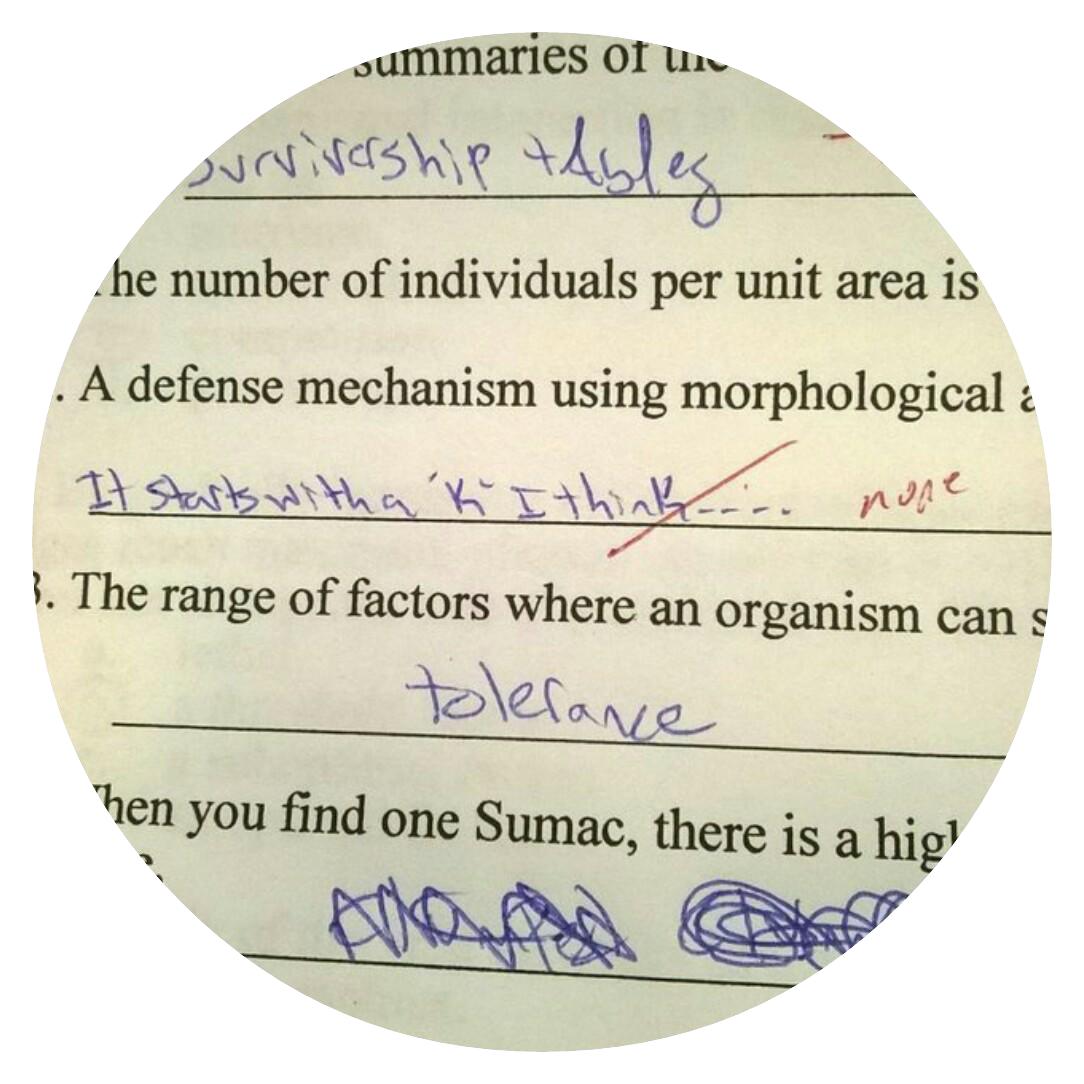 summaries of the
survivorship tables
he number of individuals per unit area is
. A defense mechanism using morphological a
It starts with a "K" I think----. nope
3. The range of factors where an organism can s
tolerance
hen you find one Sumac, there is a high